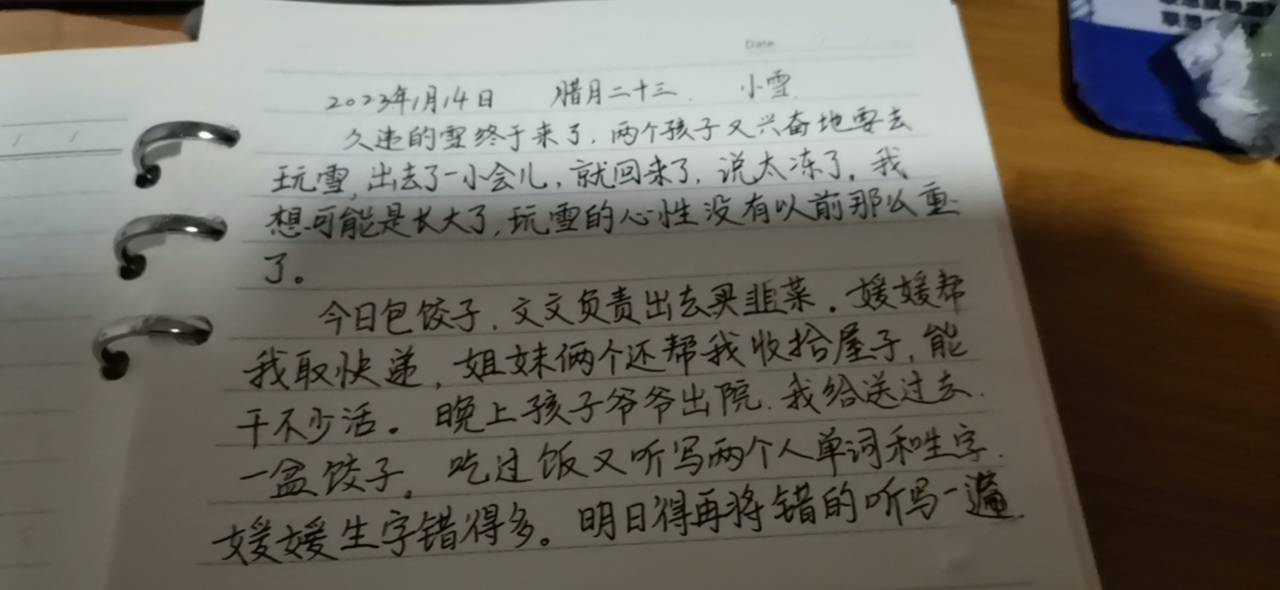 Date
2023年1月14日 腊月二十三. 小雪.
久违的雪终于来了,两个孩子又兴奋地要去
玩雪,出去了一小会儿,就回来了,说太冻了。我
想可能是长大了,玩雪的心性没有以前那么重
了。
今日包饺子,文文负责出去买韭菜。媛媛帮
我取快递,姐妹俩个还帮我收拾屋子,能
干不少活。晚上孩子爷爷出院.我给送过去.
一盆饺子。吃过饭又听写两个人单词和生字.
媛媛生字错得多。明日得再将错的听写一遍.